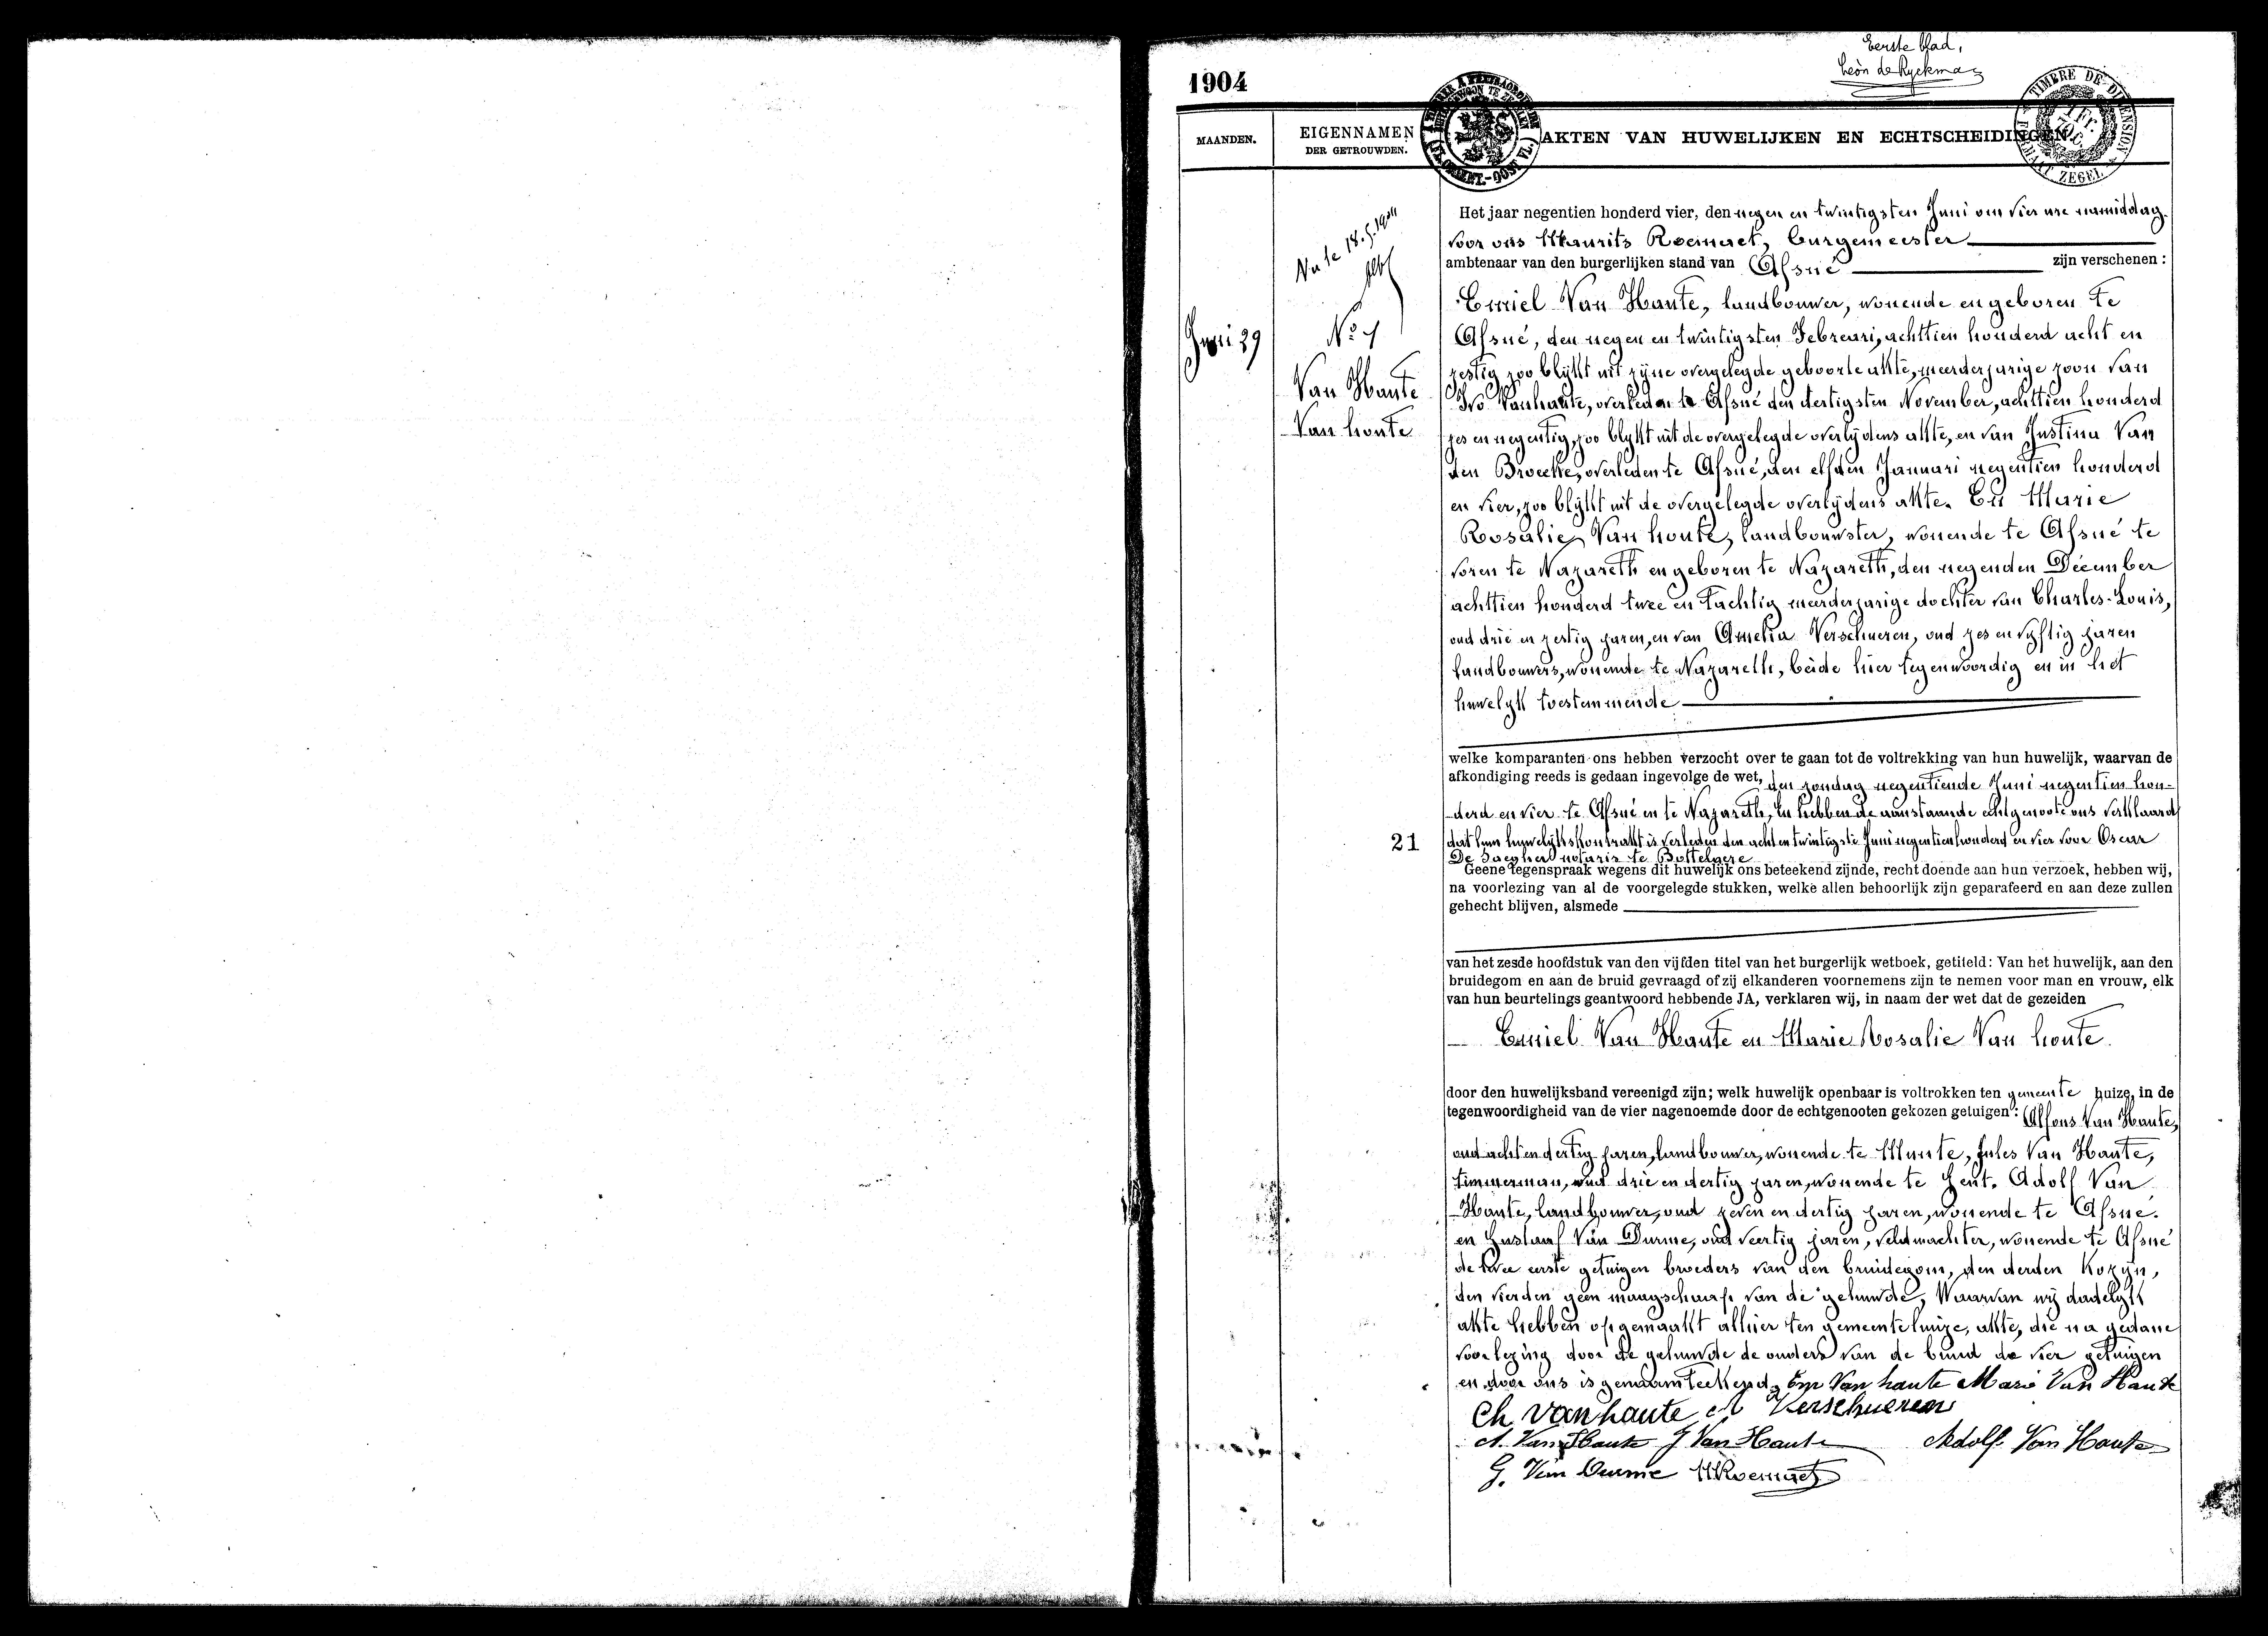 Eerste blad,
Léon de Ryckman
1904
MAANDEN.
EIGENNAMEN
DER GETROUWDEN.
AKTEN VAN HUWELIJKEN EN ECHTSCHEIDINGEN.
TIMBRE DE DIMENSION
ZEGEL
Het jaar negentien honderd vier, den negen en twintigsten Juni om vier ure namiddag.
voor ons Maurits Roemaet, burgemeester
ambtenaar van den burgerlijken stand van Afsné zijn verschenen :
Juni 29
No 1
Van Haute
Van houte
Emiel Van Haute, landbouwer, wonende en geboren te
Afsné, den negen en twintigsten Februari, achttien honderd acht en
zestig zoo blijkt uit zijne overgelegde geboorte akte, meerderjarige zoon van
Ivo Vanhaute, overleden te Afsné den dertigsten November, achttien honderd
zes en negentig, zoo blijkt uit de overgelegde overlijdens akte, en van Justina Van
den Broecke, overleden te Afsné, den elfden Januari negentien honderd
en vier, zoo blijkt uit de overgelegde overlijdens akte. En Marie
Rosalie Van houte, landbouwster, wonende te Afsné te
voren te Nazareth en geboren te Nazareth, den negenden December
achttien honderd twee en tachtig meerderjarige dochter van Charles-Louis,
oud drie en zestig jaren, en van Amelia Verschueren, oud zes en vijftig jaren
landbouwers, wonende te Nazareth, beide hier tegenwoordig en in het
huwelijk toestemmende
welke komparanten ons hebben verzocht over te gaan tot de voltrekking van hun huwelijk, waarvan de
afkondiging reeds is gedaan ingevolge de wet, den zondag negentiende Juni negentien hon-
derd en vier te Afsné en te Nazareth, En hebben de aanstaande echtgenoote ons verklaard
21
dat hun huwelijkskontrakt is verleden den acht en twintigste Juni negentienhonderd en vier voor Oscar
De Jaegher notaris te Bottelaere
Geene tegenspraak wegens dit huwelijk ons beteekend zijnde, recht doende aan hun verzoek, hebben wij,
na voorlezing van al de voorgelegde stukken, welke allen behoorlijk zijn geparafeerd en aan deze zullen
gehecht blijven, alsmede
van het zesde hoofdstuk van den vijfden titel van het burgerlijk wetboek, getiteld: Van het huwelijk, aan den
bruidegom en aan de bruid gevraagd of zij elkanderen voornemens zijn te nemen voor man en vrouw, elk
van hun beurtelings geantwoord hebbende JA, verklaren wij, in naam der wet dat de gezeiden
Emiel Van Haute en Marie Rosalie Van houte.
door den huwelijksband vereenigd zijn; welk huwelijk openbaar is voltrokken ten gemeente huize, in de
tegenwoordigheid van de vier nagenoemde door de echtgenooten gekozen getuigen : Alfons Van Haute,
oud acht en dertig jaren, landbouwer, wonende te Munte, Jules Van Haute,
timmerman, oud drie en dertig jaren, wonende te Gent. Adolf Van
Haute, landbouwer, oud zeven en dertig jaren, wonende te Afsné.
en Gustaaf Van Durme, oud veertig jaren, veldwachter, wonende te Afsné
de twee eerste getuigen broeders van den bruidegom, den derden Kozyn,
den vierden geen maagschaap van de gehuwde, Waarvan wij dadelijk
akte hebben opgemaakt alhier ten gemeentehuize, akte, die na gedane
voorlezing door de gehuwde de ouders van de bruid de vier getuigen
en door ons is genaamteekend. Em Van haute Marie Van Haute
Ch Vanhaute A Verschueren
A. Van Haute J Van Haute Adolf Van Haute
G. Van Durme MRoemaet